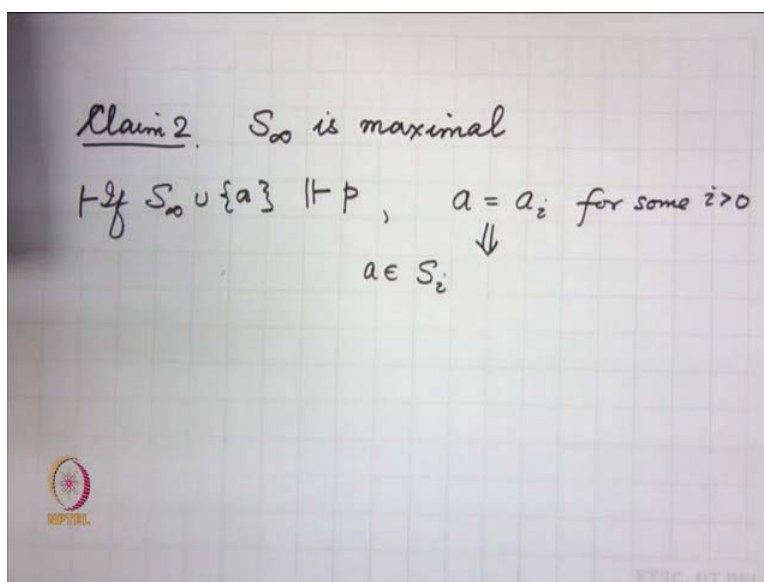 Claim 2. S∞ is maximal
⊢ If S∞ ∪ {a} ⊩ p, a = aᵢ for some i>0
⇓
a ∈ Sᵢ
NPTEL